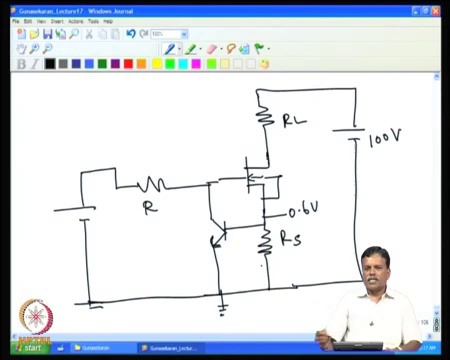 Gunasekaran_Lecture17 - Windows Journal
File Edit View Insert Actions Tools Help
100%
B I
RL
100V
R
0.6V
RS
NPTEL
start
Gunasekaran
Gunasekaran_Lectur...